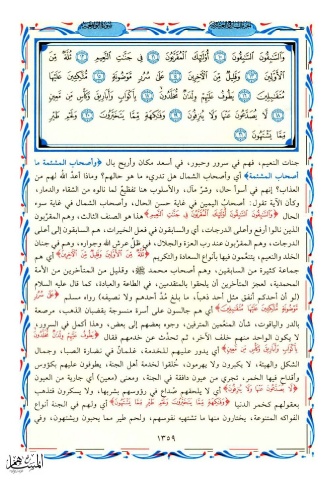 وَالسَّابِقُونَ السَّابِقُونَ ۝ أُولَئِكَ الْمُقَرَّبُونَ ۝ فِي جَنَّاتِ النَّعِيمِ ۝ ثُلَّةٌ مِنَ
الْأَوَّلِينَ ۝ وَقَلِيلٌ مِنَ الْآخِرِينَ ۝ عَلَى سُرُرٍ مَوْضُونَةٍ ۝ مُتَّكِئِينَ عَلَيْهَا
مُتَقَابِلِينَ ۝ يَطُوفُ عَلَيْهِمْ وِلْدَانٌ مُخَلَّدُونَ ۝ بِأَكْوَابٍ وَأَبَارِيقَ وَكَأْسٍ مِنْ مَعِينٍ
۝ لَا يُصَدَّعُونَ عَنْهَا وَلَا يُنْزِفُونَ ۝ وَفَاكِهَةٍ مِمَّا يَتَخَيَّرُونَ ۝ وَلَحْمِ طَيْرٍ
مِمَّا يَشْتَهُونَ ۝
جنات النعيم، فهم في سرور وحبور، في أسعد مكان وأريح بال ﴿وأصحاب المشئمة ما
أصحاب المشئمة﴾ أي وأصحاب الشمال هل تدري ما هو حالهم؟ وماذا أعدَّ الله لهم من
العذاب؟ إنهم في أسوأ حال، وشرّ مآل، والأسلوب هنا تفظيع لما نالوه من الشقاء والدمار،
وكأن الآية تقول: أصحاب اليمين في غاية حسن الحال، وأصحاب الشمال في غاية سوء
الحال ﴿وَالسَّابِقُونَ السَّابِقُونَ أُولَئِكَ الْمُقَرَّبُونَ فِي جَنَّاتِ النَّعِيمِ﴾ هذا هو الصنف الثالث، وهم المقرّبون
الذين نالوا أرفع وأعلى الدرجات، أي والسابقون في فعل الخيرات، هم السابقون إلى أعلى
الدرجات، وهم المقربون عند رب العزة والجلال، في ظل عرش الله وجواره، وهم في جنان
الخلد والنعيم، يتنعّمون فيها بأنواع السعادة والتكريم ﴿ثُلَّةٌ مِنَ الْأَوَّلِينَ وَقَلِيلٌ مِنَ الْآخِرِينَ﴾ أي هم
جماعة كثيرة من السابقين، وهم أصحاب محمد ﷺ، وقليل من المتأخرين من الأمة
المحمدية، لعجز المتأخرين أن يلحقوا بالمتقدمين، في الطاعة والعبادة، كما قال عليه السلام
(لو أن أحدكم أنفق مثل أحد ذهباً، ما بلغ مُدّ أحدهم ولا نصيفه) رواه مسلم ﴿عَلَى سُرُرٍ
مَوْضُونَةٍ مُتَّكِئِينَ عَلَيْهَا مُتَقَابِلِينَ﴾ أي هم جالسون على أسرة منسوجة بقضبان الذهب، مرصعة
بالدر والياقوت، شأن المنعمين المترفين، وجوه بعضهم إلى بعض، وهذا أكمل في السرور،
لا يكون الواحد منهم خلف الآخر، ثم تحدَّث عن خدمهم فقال ﴿يَطُوفُ عَلَيْهِمْ وِلْدَانٌ مُخَلَّدُونَ
بِأَكْوَابٍ وَأَبَارِيقَ وَكَأْسٍ مِنْ مَعِينٍ﴾ أي يدور عليهم للخدمة، غلمانٌ في نضارة الصبا، وجمال
الشكل والهيئة، لا يكبرون ولا يهرمون، خُلقوا لخدمة أهل الجنة، يطوفون عليهم بكؤوس
وأقداح فيها الخمر، تجري من عيون دافقة في الجنة، ومعنى (معين) أي جارية من العيون
﴿لَا يُصَدَّعُونَ عَنْهَا وَلَا يُنْزِفُونَ﴾ أي لا يلحقهم صُداع في رؤوسهم بشربها، ولا يسكرون فتذهب
بعقولهم كخمر الدنيا ﴿وَفَاكِهَةٍ مِمَّا يَتَخَيَّرُونَ وَلَحْمِ طَيْرٍ مِمَّا يَشْتَهُونَ﴾ أي ولهم في الجنة أنواع
الفواكه المتنوعة، يختارون منها ما تشتهيه نفوسهم، ولحم طير مما يحبون ويشتهون، وفي
١٣٥٩